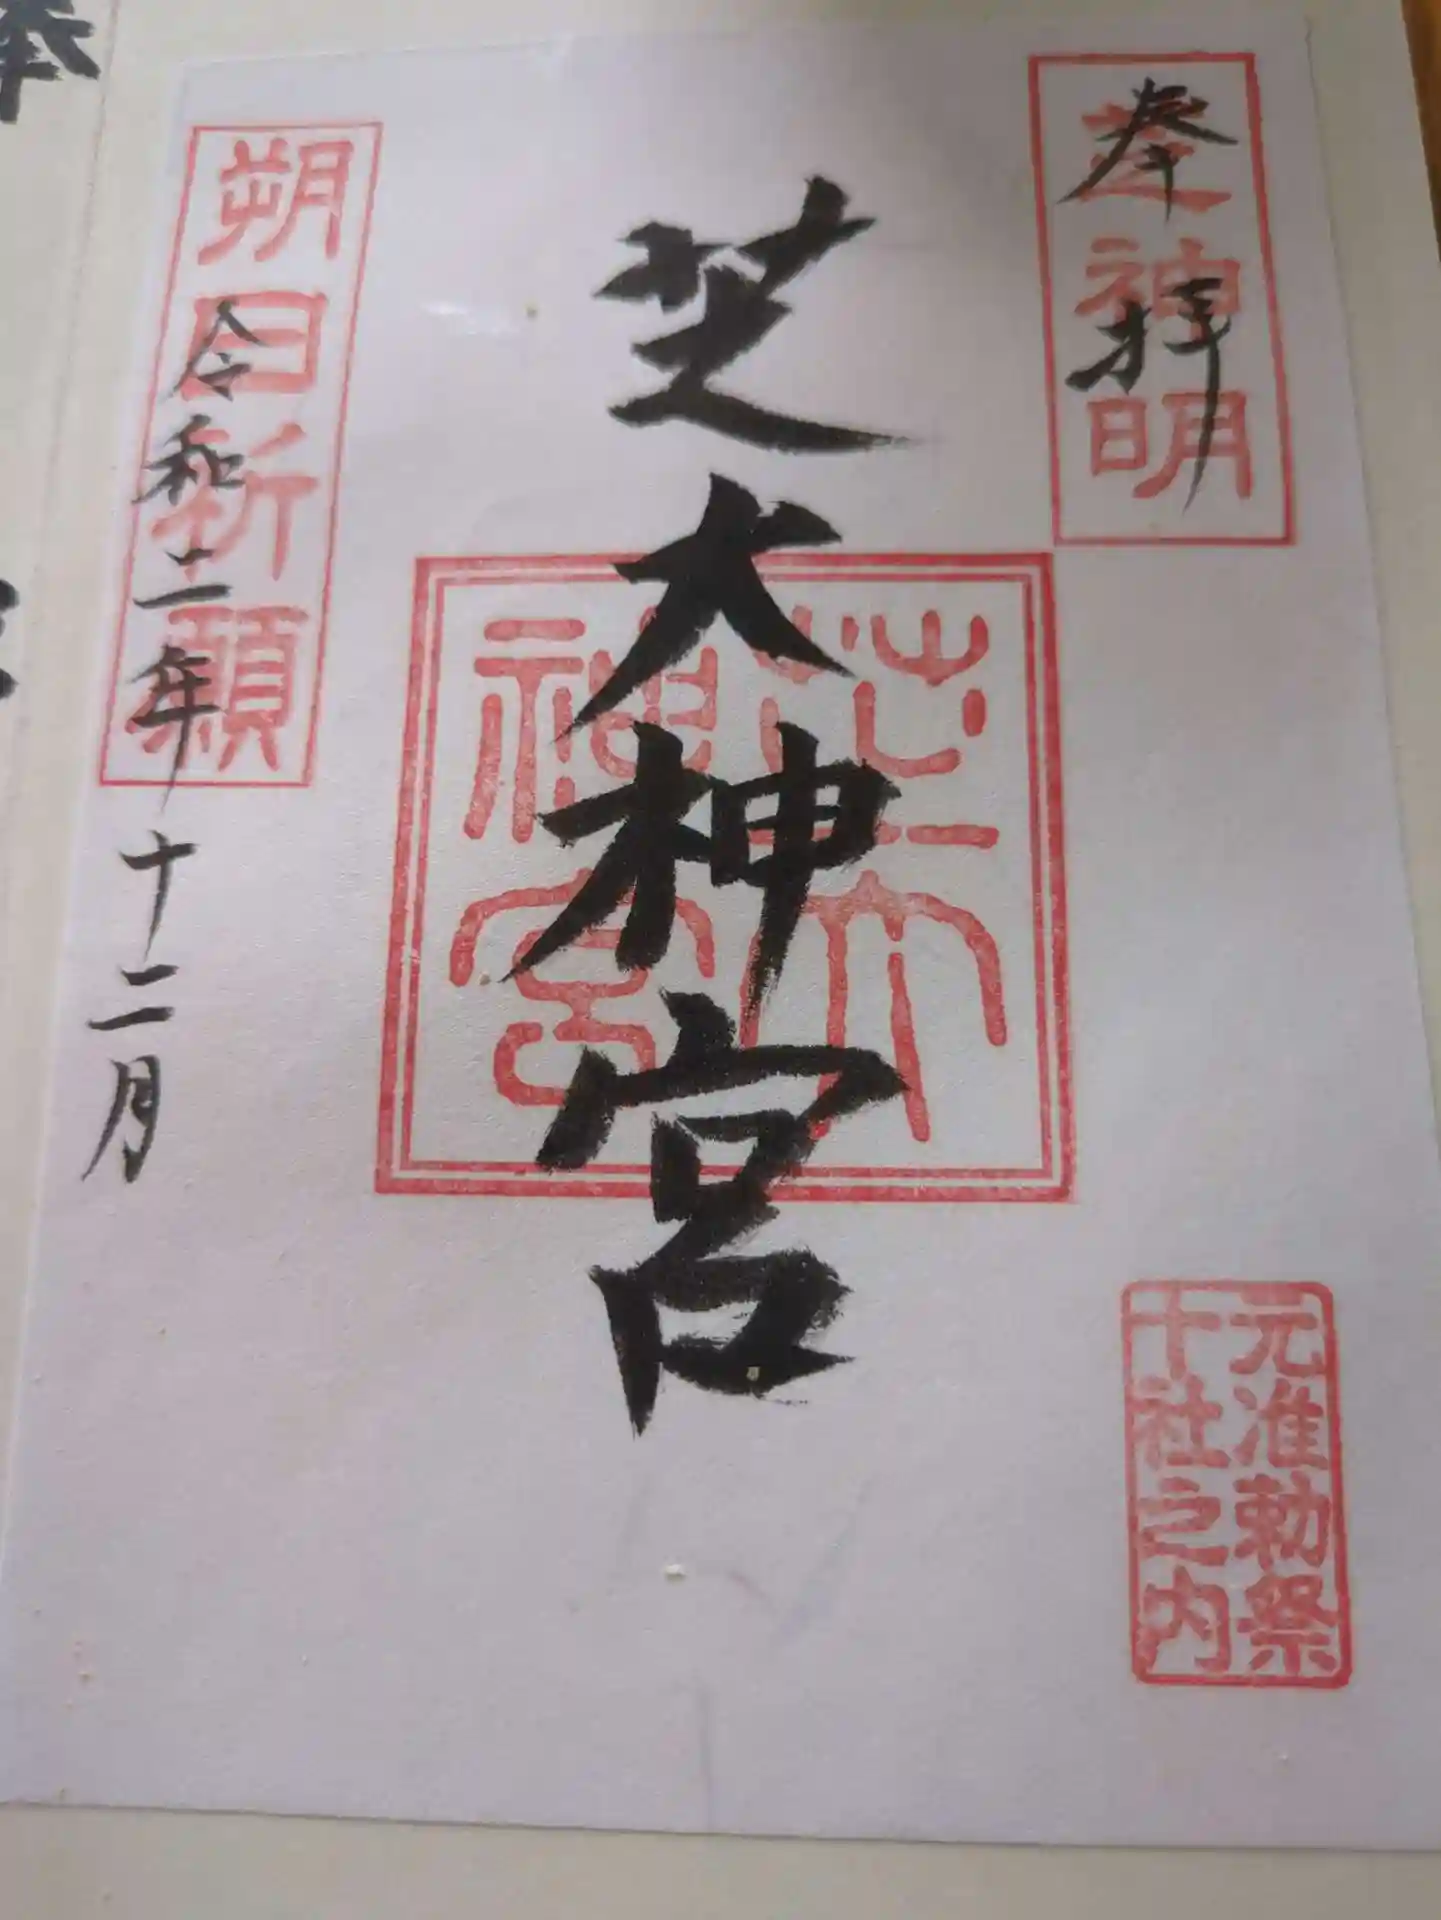 奉拝
芝神明
芝大神宮
芝大神宮
朔日祈願
令和二年十二月
元准勅祭
十社之内
奉